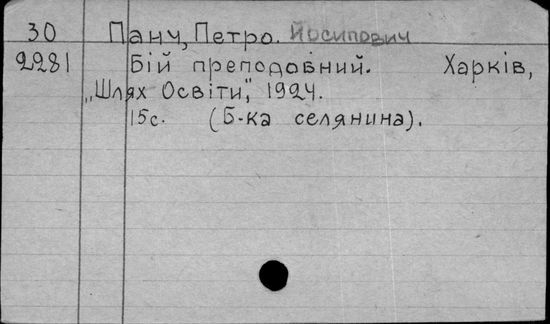 30 Панч, Петро. Йосипович
2281 Бій преподобний. Харків,
„Шлях Освіти", 1924.
15с. (Б-ка селянина).